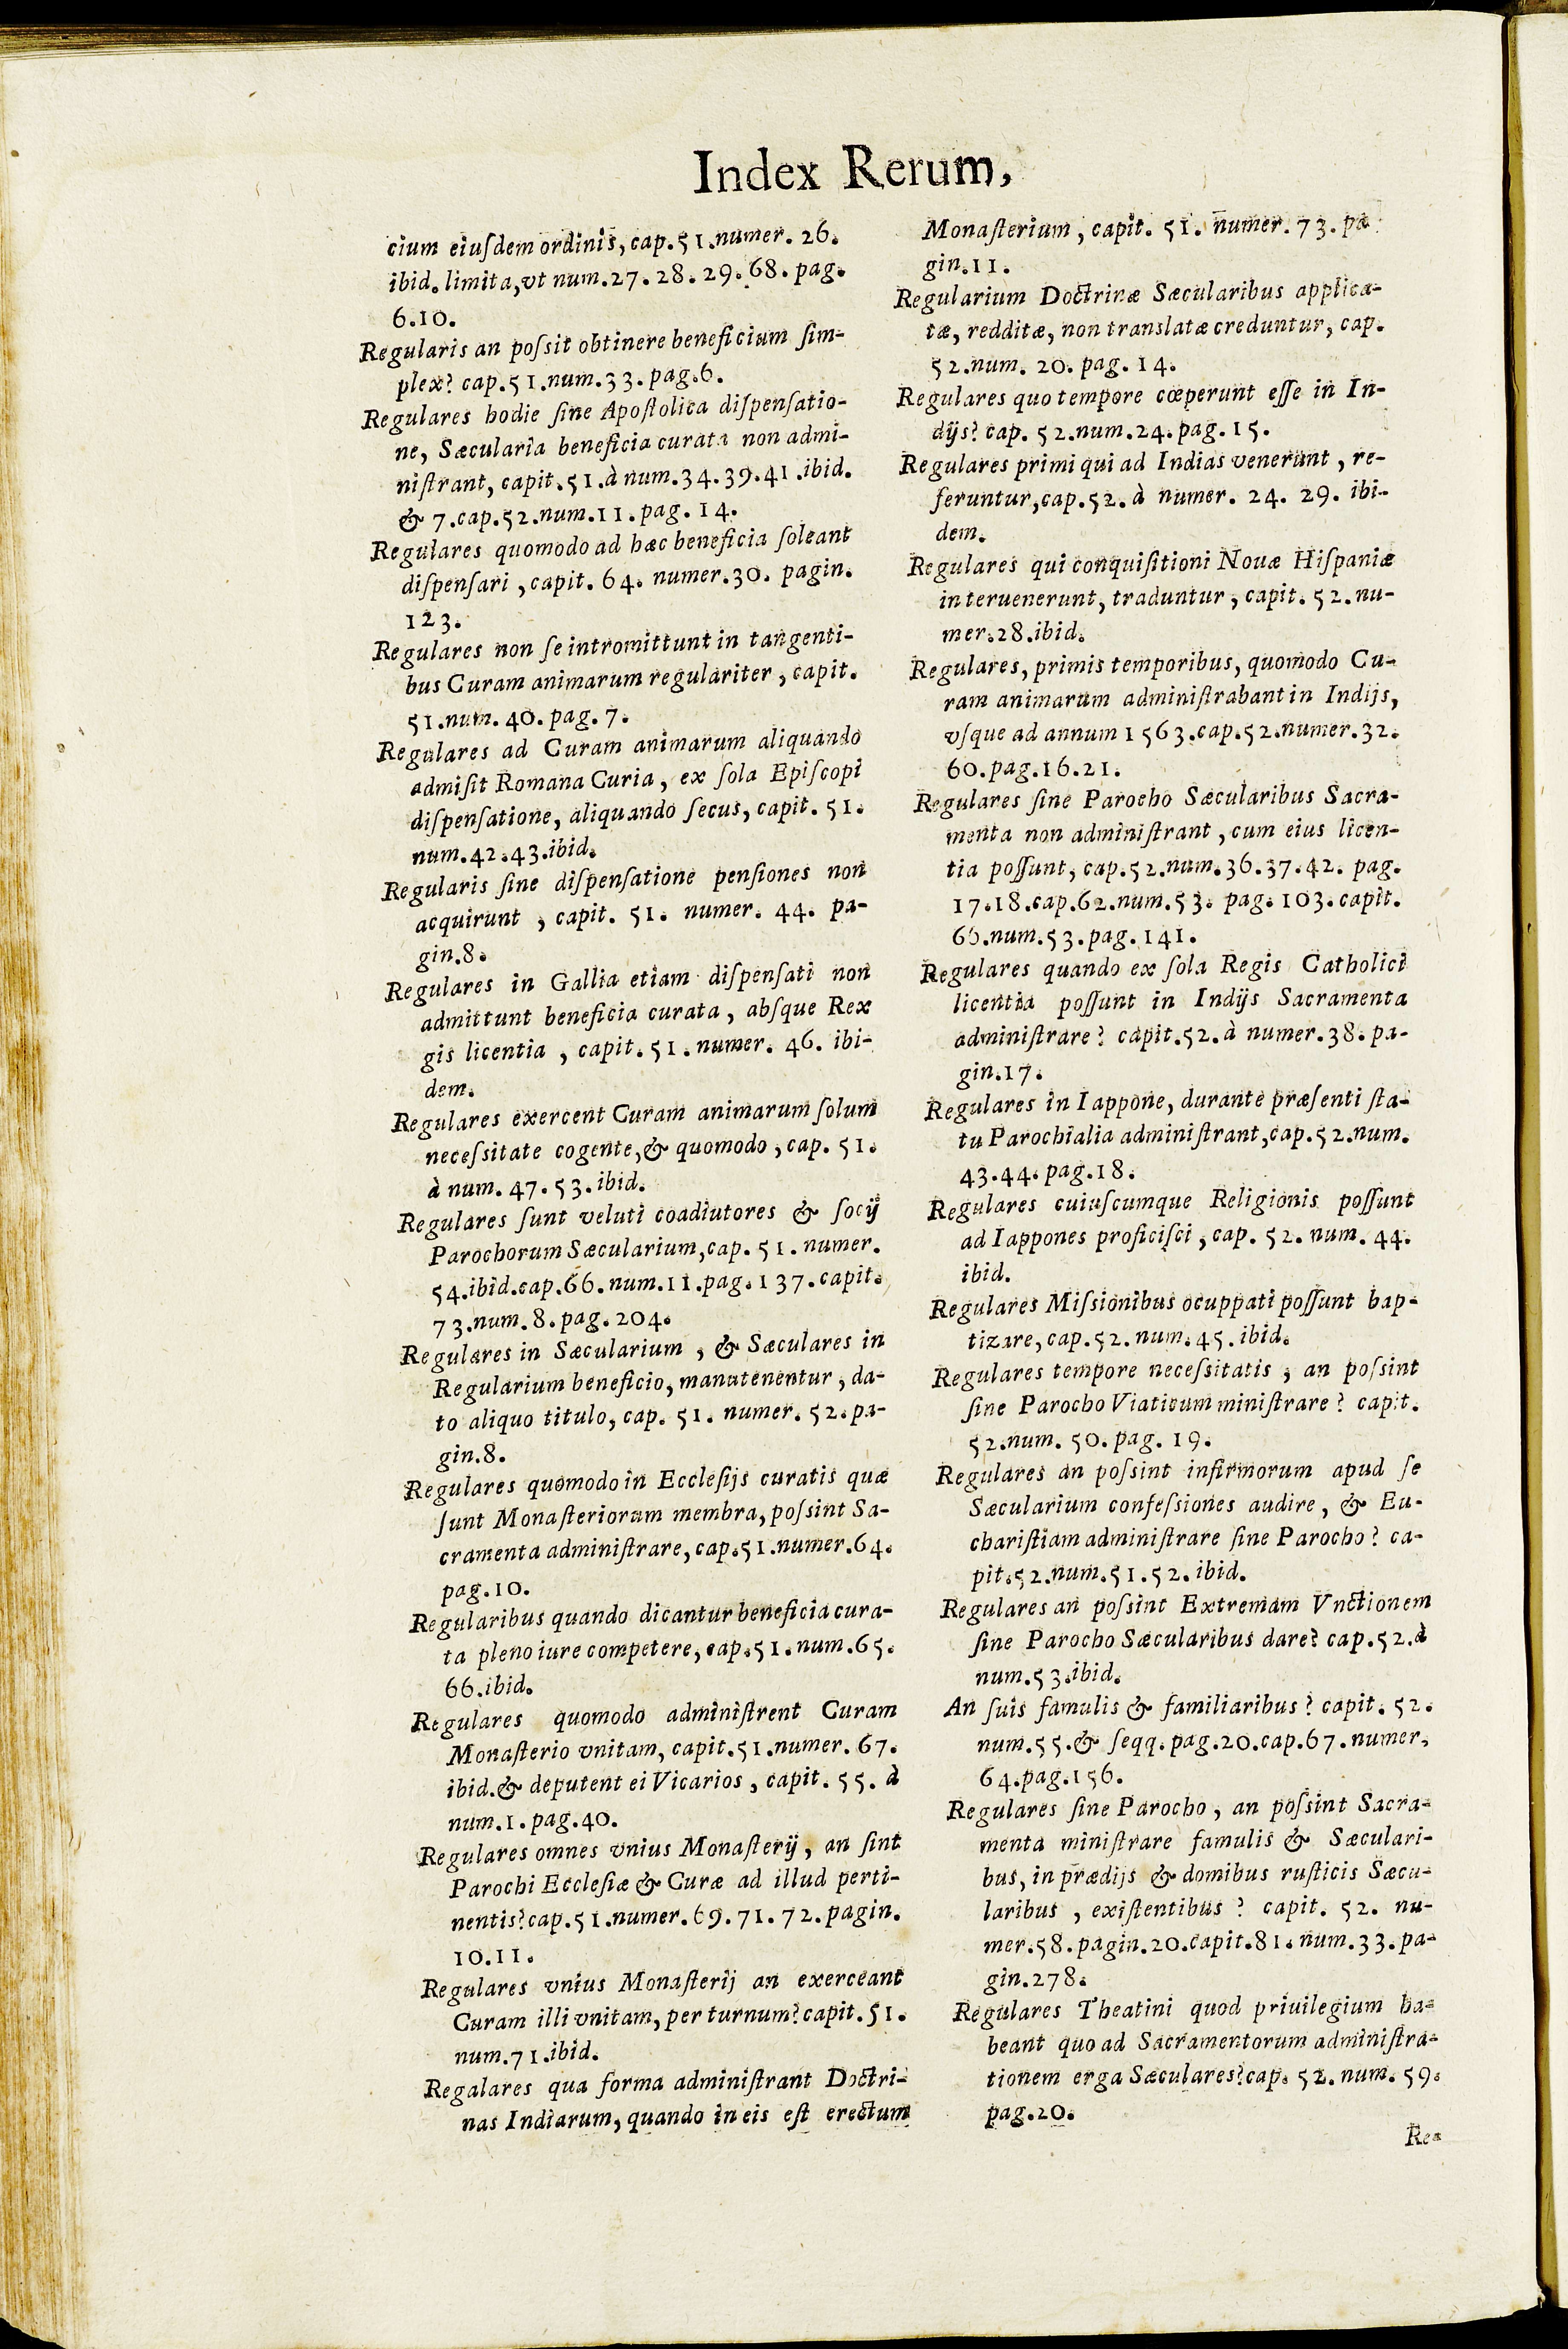 Index Rerum,
cium eiuſdem ordinis, cap. 51. numer. 26.
ibid. limita, vt num. 27. 28. 29. 68. pag.
6. 10.
Regularis an poſsit obtinere beneficium ſim-
plex? cap. 51. num. 33. pag. 6.
Regulares hodie ſine Apoſtolica diſpenſatio-
ne, Sæcularia beneficia curata non admi-
niſtrant, capit. 51. à num. 34. 39. 41. ibid.
& 7. cap. 52. num. 11. pag. 14.
Regulares quomodo ad hæc beneficia ſoleant
diſpenſari, capit. 64. numer. 30. pagin.
123.
Regulares non ſe intromittunt in tangenti-
bus Curam animarum regulariter, capit.
51. num. 40. pag. 7.
Regulares ad Curam animarum aliquando
admiſit Romana Curia, ex ſola Epiſcopi
diſpenſatione, aliquando ſecus, capit. 51.
num. 42. 43. ibid.
Regularis ſine diſpenſatione penſiones non
acquirunt, capit. 51. numer. 44. pa-
gin. 8.
Regulares in Gallia etiam diſpenſati non
admittunt beneficia curata, abſque Rex
gis licentia, capit. 51. numer. 46. ibi-
dem.
Regulares exercent Curam animarum ſolum
neceſsitate cogente, & quomodo, cap. 51.
à num. 47. 53. ibid.
Regulares ſunt veluti coadiutores & ſocij
Parochorum Sæcularium, cap. 51. numer.
54. ibid. cap. 66. num. 11. pag. 137. capit.
73. num. 8. pag. 204.
Regulares in Sæcularium, & Sæculares in
Regularium beneficio, manutenentur, da-
to aliquo titulo, cap. 51. numer. 52. pa-
gin. 8.
Regulares quomodo in Eccleſijs curatis quæ
ſunt Monaſteriorum membra, poſsint Sa-
cramenta adminiſtrare, cap. 51. numer. 64.
pag. 10.
Regularibus quando dicantur beneficia cura-
ta pleno iure competere, cap. 51. num. 65.
66. ibid.
Regulares quomodo adminiſtrent Curam
Monaſterio vnitam, capit. 51. numer. 67.
ibid. & deputent ei Vicarios, capit. 55. à
num. 1. pag. 40.
Regulares omnes vnius Monaſterij, an ſint
Parochi Eccleſiæ & Curæ ad illud perti-
nentis? cap. 51. numer. 69. 71. 72. pagin.
10. 11.
Regulares vnius Monaſterij an exerceant
Curam illi vnitam, per turnum? capit. 51.
num. 71. ibid.
Regalares qua forma adminiſtrant Doctri-
nas Indiarum, quando in eis eſt erectum
Monaſterium, capit. 51. numer. 73. pa
gin. 11.
Regularium Doctrinæ Sæcularibus applica-
tæ, redditæ, non translatæ creduntur, cap.
52. num. 20. pag. 14.
Regulares quo tempore cœperunt eſſe in In-
dijs? cap. 52. num. 24. pag. 15.
Regulares primi qui ad Indias venerunt, re-
feruntur, cap. 52. à numer. 24. 29. ibi-
dem.
Regulares qui conquiſitioni Nouæ Hiſpaniæ
interuenerunt, traduntur, capit. 52. nu-
mer. 28. ibid.
Regulares, primis temporibus, quomodo Cu-
ram animarum adminiſtrabant in Indijs,
vſque ad annum 1563. cap. 52. numer. 32.
60. pag. 16. 21.
Regulares ſine Parocho Sæcularibus Sacra-
menta non adminiſtrant, cum eius licen-
tia poſſunt, cap. 52. num. 36. 37. 42. pag.
17. 18. cap. 62. num. 53. pag. 103. capit.
num. 53. pag. 141.
Regulares quando ex ſola Regis Catholici
licentia poſſunt in Indijs Sacramenta
adminiſtrare? capit. 52. à numer. 38. pa-
gin. 17.
Regulares in Iappone, durante præſenti ſta-
tu Parochialia adminiſtrant, cap. 52. num.
43. 44. pag. 18.
Regulares cuiuſcumque Religionis poſſunt
ad Iappones proficiſci, cap. 52. num. 44.
ibid.
Regulares Miſsionibus ocuppati poſſunt bap-
tizare, cap. 52. num. 45. ibid.
Regulares tempore neceſsitatis, an poſsint
ſine Parocho Viaticum miniſtrare? capit.
52. num. 50. pag. 19.
Regulares an poſsint infirmorum apud ſe
Sæcularium confeſsiones audire, & Eu-
chariſtiam adminiſtrare ſine Parocho? ca-
pit. 52. num. 51. 52. ibid.
Regulares an poſsint Extremam Vnctionem
ſine Parocho Sæcularibus dare? cap. 52. à
num. 53. ibid.
An ſuis famulis & familiaribus? capit. 52.
num. 55. & ſeqq. pag. 20. cap. 67. numer.
64. pag. 156.
Regulares ſine Parocho, an poſsint Sacra-
menta miniſtrare famulis & Sæculari-
bus, in prædijs & domibus ruſticis Sæcu-
laribus, exiſtentibus? capit. 52. nu-
mer. 58. pagin. 20. capit. 81. num. 33. pa-
gin. 278.
Regulares Theatini quod priuilegium ha-
beant quo ad Sacramentorum adminiſtra-
tionem erga Sæculares? cap. 52. num. 59.
pag. 20.
Re-